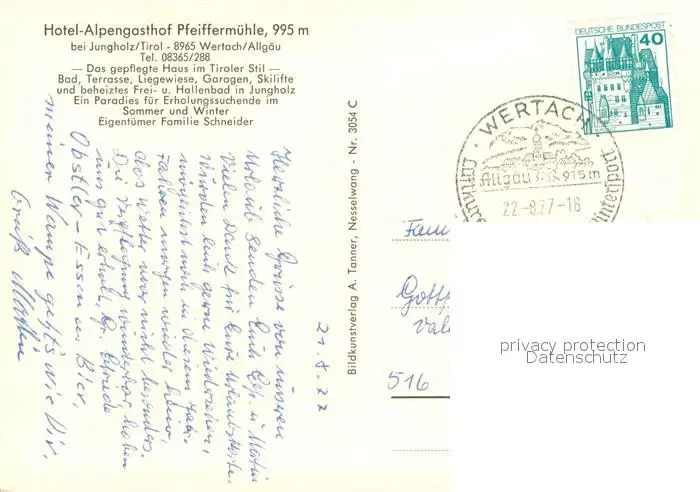 Hotel-Alpengasthof Pfeiffermühle, 995 m
bei Jungholz/Tirol - 8965 Wertach/Allgäu
Tel. 08365/288
— Das gepflegte Haus im Tiroler Stil —
Bad, Terrasse, Liegewiese, Garagen, Skilifte
und beheiztes Frei- u. Hallenbad in Jungholz
Ein Paradies für Erholungssuchende im
Sommer und Winter
Eigentümer Familie Schneider
21.8.77
Herzliche Grüsse von unserem
Urlaub senden Euch u. Martin
Vielen Dank für Eure Urlaubskarte.
Würden Euch gerne wiedersehen,
möglichst noch in diesem Jahr.
Fahren morgen wieder heim,
das Wetter war nicht besonders.
Die Verpflegung wunderbar, haben
uns gut erholt.
Obstler - Essen u. Bier,
meiner Wampe geht's wie Dir.
Gruß Martin
Bildkunstverlag A. Tanner, Nesselwang - Nr. 3054 C
DEUTSCHE BUNDESPOST
40
WERTACH
Allgäu 915 m
22.-8.77-18
Fam
Gottf
Val
516
privacy protection
Datenschutz